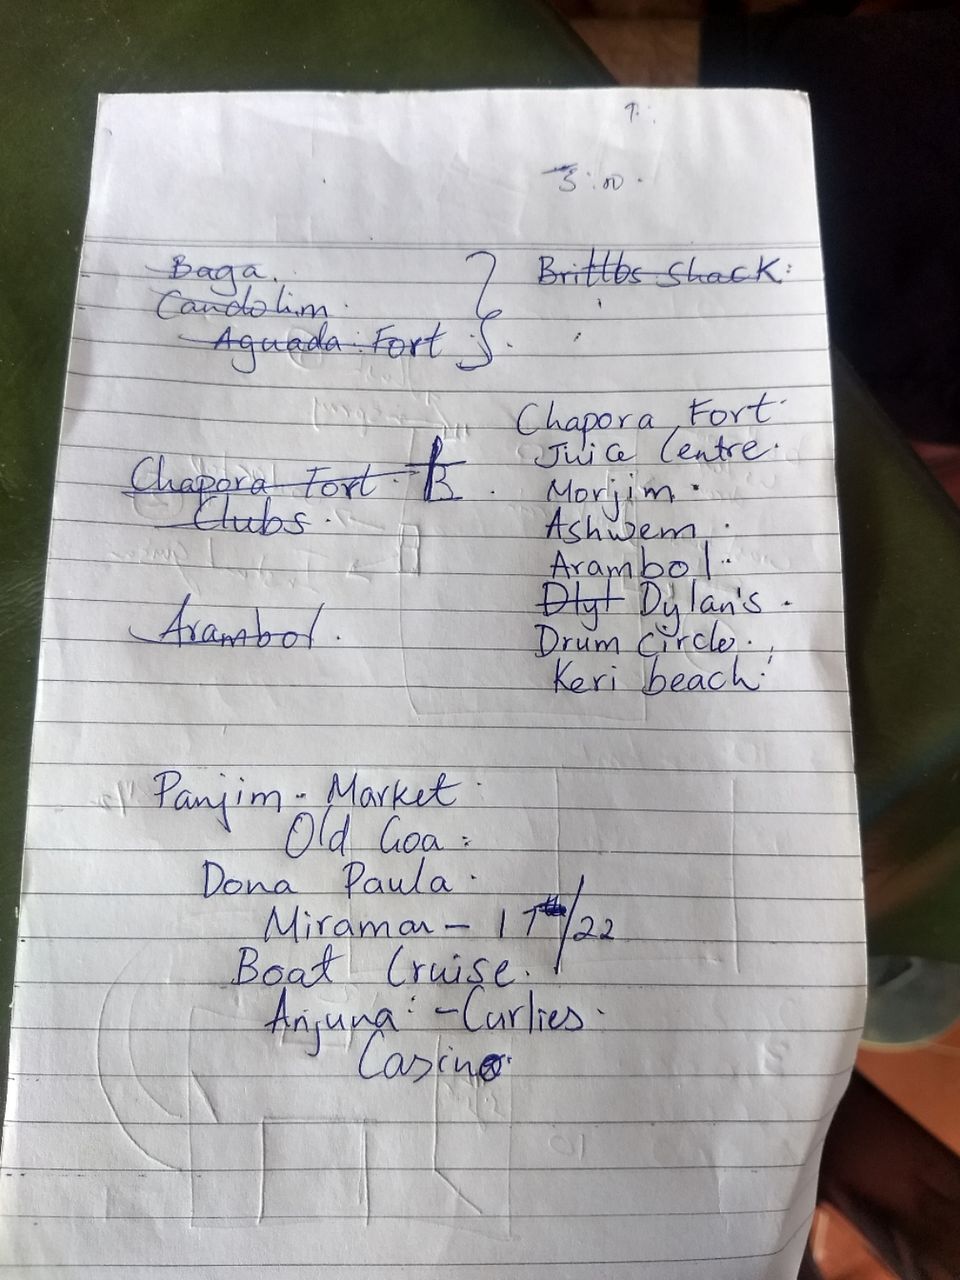 3:00.
Baga.
Candolim.
Aguada Fort
Brittbs Shack:
Chapora Fort.
Clubs.
Arambol.
Chapora Fort
Juice Centre.
Morjim.
Ashwem.
Arambol.
Dlyt Dylan's.
Drum Circle.
Keri beach.
Panjim - Market
Old Goa:
Dona Paula.
Miramar - 17th/22
Boat Cruise.
Anjuna: - Curlies.
Casino.